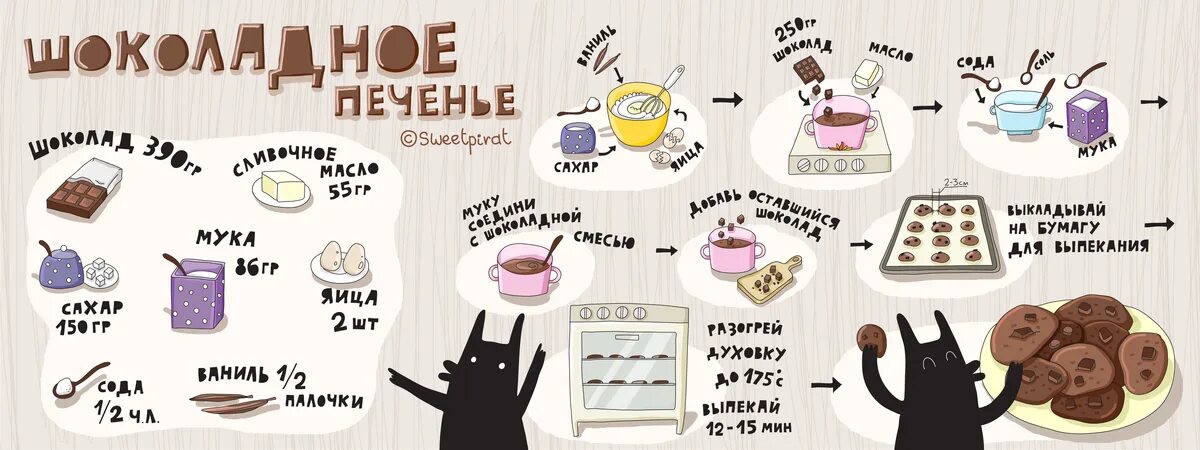 ШОКОЛАДНОЕ
ПЕЧЕНЬЕ
©Sweetpirat
ШОКОЛАД 390ГР
СЛИВОЧНОЕ
МАСЛО
55ГР
САХАР
150ГР
МУКА
86ГР
ЯИЦА
2ШТ
СОДА
1/2 Ч.Л.
ВАНИЛЬ 1/2
ПАЛОЧКИ
ВАНИЛЬ
САХАР
ЯИЦА
250ГР
ШОКОЛАД
МАСЛО
СОДА
СОЛЬ
МУКА
МУКУ
СОЕДИНИ
С ШОКОЛАДНОЙ
СМЕСЬЮ
ДОБАВЬ ОСТАВШИЙСЯ
ШОКОЛАД
2-3см
ВЫКЛАДЫВАЙ
НА БУМАГУ
ДЛЯ ВЫПЕКАНИЯ
РАЗОГРЕЙ
ДУХОВКУ
ДО 175°С
ВЫПЕКАЙ
12-15 МИН